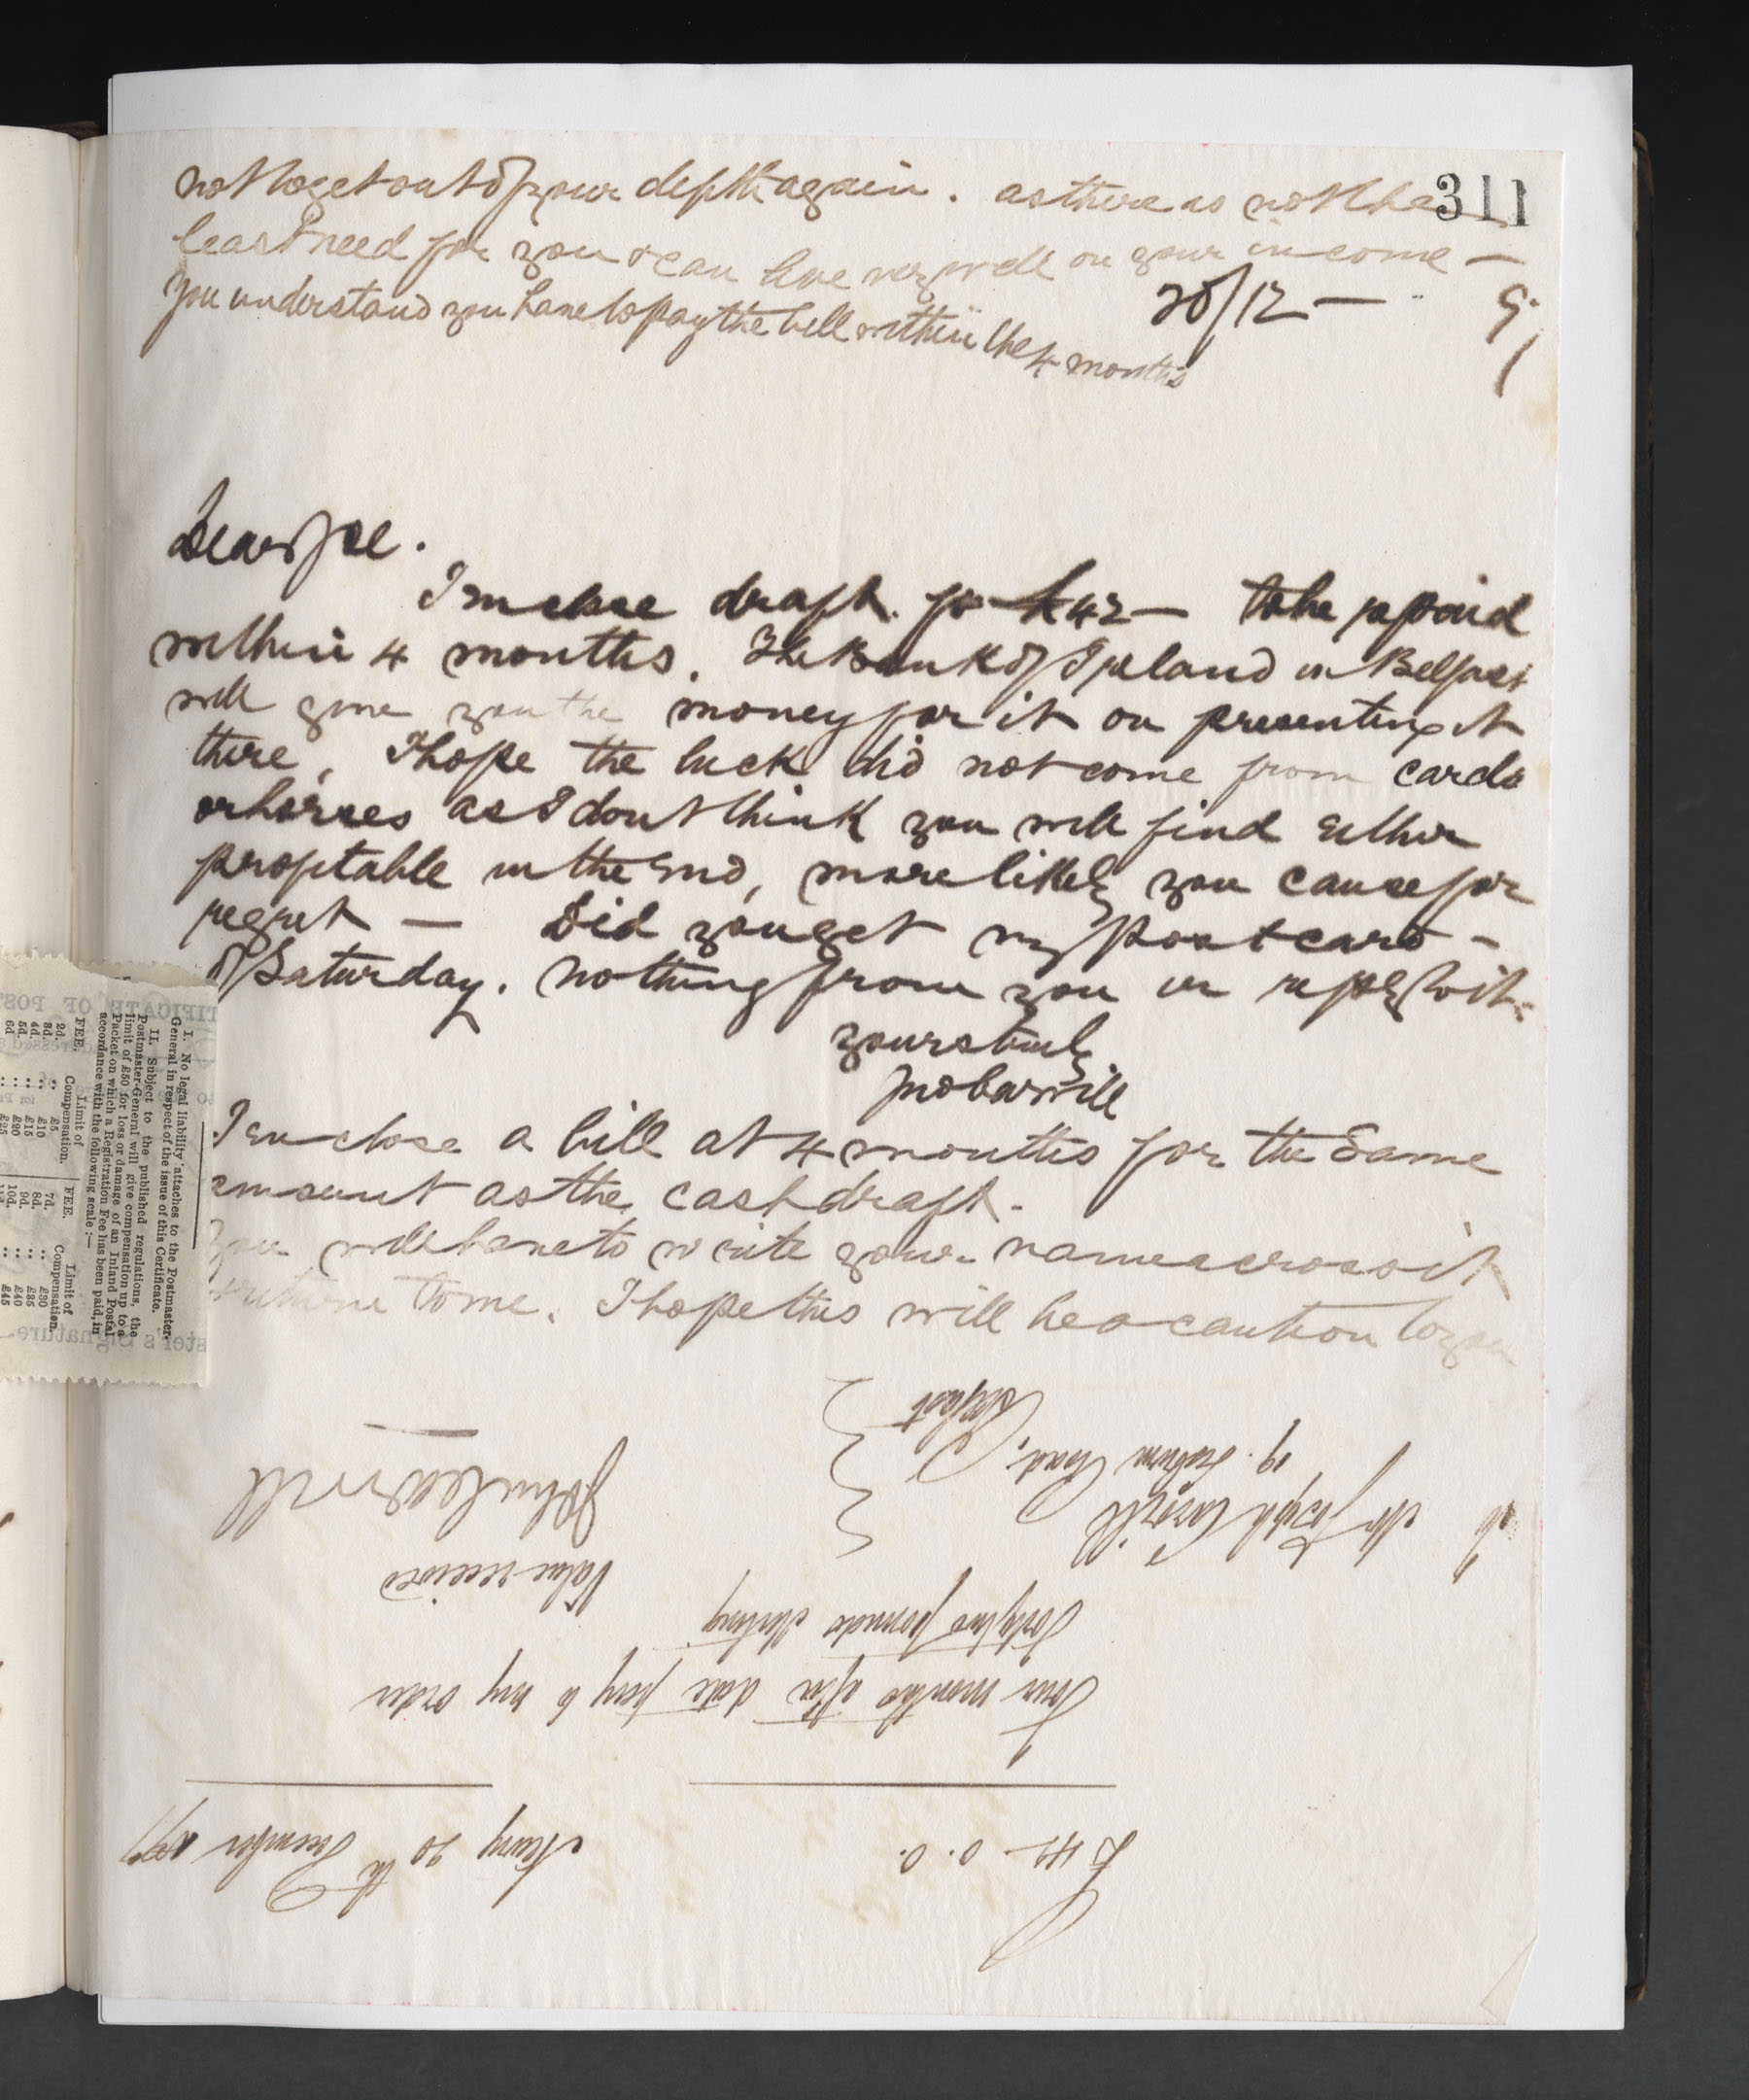 not to get out of your depth again. as there is not the 311
least need for you & can live very well on your income —
20/12 — 97
you understand you have to pay the bill within the 4 months
Dear Joe.
I enclose draft for £42 — to be repaid
within 4 months. The Bank of Ireland in Belfast
will give you the money for it on presenting it
there, I hope the luck did not come from cards
or horses as I dont think you will find either
profitable in the End, more likely you cause for
regret — Did you get my post card —
of Saturday. nothing from you in reply to it.
yours truly
Jno Carvill
I enclose a bill at 4 months for the same
amount as the cash draft.
you will have to write your name across it
& return to me. I hope this will be a caution to you
£42. 0. 0. Newry 20th December 1897
Four months after date pay to my order
Forty two pounds sterling
Value received
To Mr Joseph Carvill
19. Road,
Belfast
John Carvill
I. No legal liability attaches to the Postmaster-
General in respect of the issue of this Certificate.
II. Subject to the published regulations, the
Postmaster-General will give compensation up to a
limit of £50 for loss or damage of an Inland Postal
Packet on which a Registration Fee has been paid, in
accordance with the following scale :—
FEE. Limit of Compensation. FEE. Limit of Compensation.
2d. .. £5 7d. .. £30
3d. .. £10 8d. .. £35
4d. .. £15 9d. .. £40
5d. .. £20 10d. .. £45
6d. .. £25